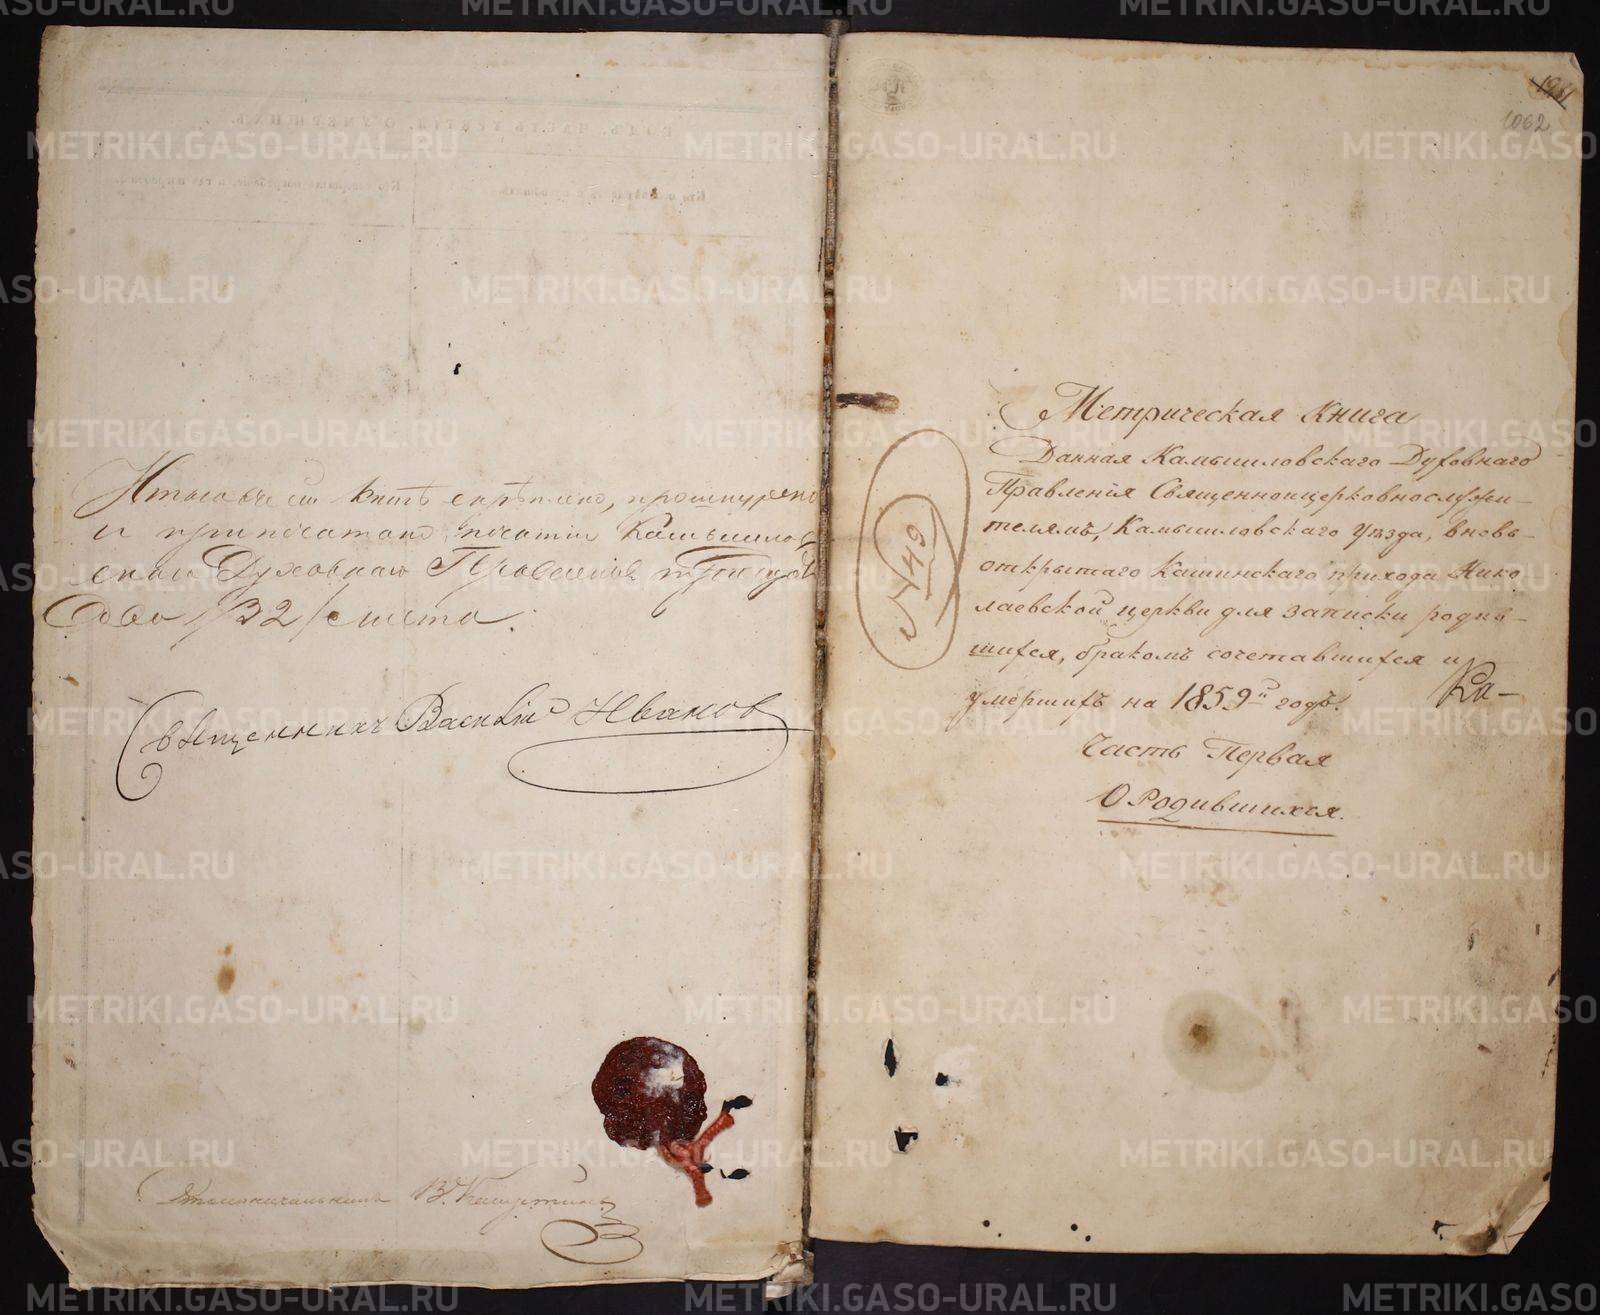 Итого въ сей книгѣ скрѣплено, прошнурено
и припечатано печатью Камышлов
скаго Духовнаго Правленія тритцать
два /32/ листа.
Священникъ Василій Иванов
Столоначальникъ В.
1062
№ 49
Метрическая Книга
Данная Камышловскаго Духовнаго
Правленія Священноцерковнослужи-
телямъ, Камышловскаго Уѣзда, вновь-
открытаго Кашинскаго прихода Нико
лаевской церкви для записки родив-
шихся, бракомъ сочетавшихся и
умершихъ на 1859й годъ.
Ка-
Часть Первая
О Родившихся.
METRIKI.GASO-URAL.RU